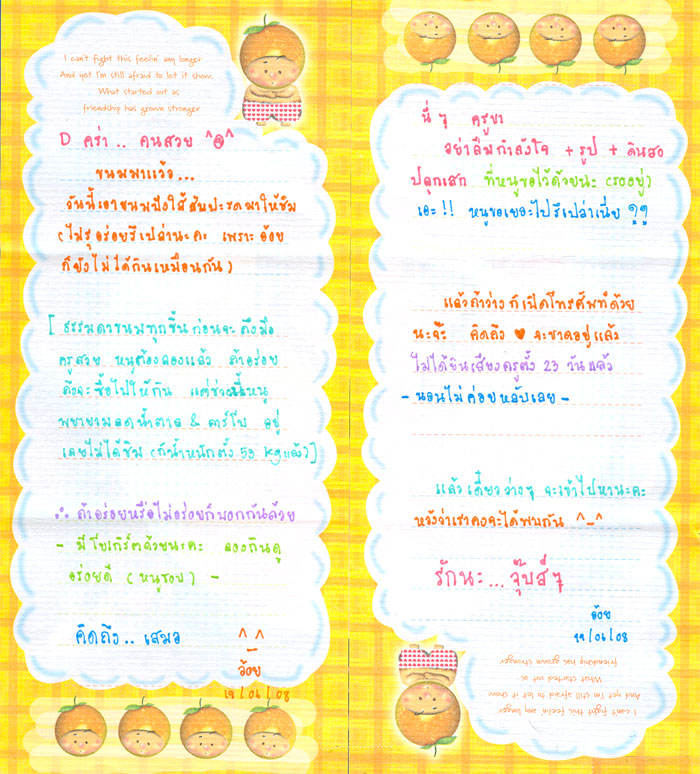 I can't fight this feelin' any longer
And yet I'm still afraid to let it show
What started out as
friendship has grown stronger
D คร่า .. คนสวย ^@^
ขนมมาแว้ว ...
วันนี้เอาขนมปังไส้สับปะรดมาให้ชิม
(ไม่รู้อร่อยรึเปล่านะคะ เพราะอ้อย
ก็ยังไม่ได้กินเหมือนกัน)
[ ธรรมดาขนมทุกชิ้นก่อนจะถึงมือ
ครูสวย หนูต้องลองแล้ว ถ้าอร่อย
ถึงจะซื้อไปให้กัน แต่ช่วงนี้หนู
พยายามลดน้ำตาล & คาร์โบ อยู่
เลยไม่ได้ชิม (ก็น้ำหนักตั้ง 53 kg แล้ว)]
ถ้าอร่อยหรือไม่อร่อยก็บอกกันด้วย
- มีโยเกิร์ตด้วยนะคะ ลองกินดู
อร่อยดี (หนูชอบ) -
คิดถึง.. เสมอ ^ ^
อ้อย
19/06/08
นี่ๆ ครูขา
อย่าลืมกำลังใจ + รูป + ดินสอ
ปลุกเสก ที่หนูขอไว้ด้วยนะ (รออยู่)
เอะ !! หนูขอเยอะไปรึเปล่าเนี่ย ๆๆ
แล้วถ้าว่างก็เปิดโทรศัพท์ด้วย
นะจ๊ะ คิดถึง ♥ จะขาดอยู่แล้ว
ไม่ได้ยินเสียงครูตั้ง 23 วันแล้ว
- นอนไม่ค่อยหลับเลย -
แล้วเดี๋ยวว่างๆ จะเข้าไปหานะคะ
หวังว่าเราคงจะได้พบกัน ^-^
รักนะ ... จุ๊บส์ๆ
อ้อย
19/06/08
I can't fight this feelin' any longer
And yet I'm still afraid to let it show
What started out as
friendship has grown stronger